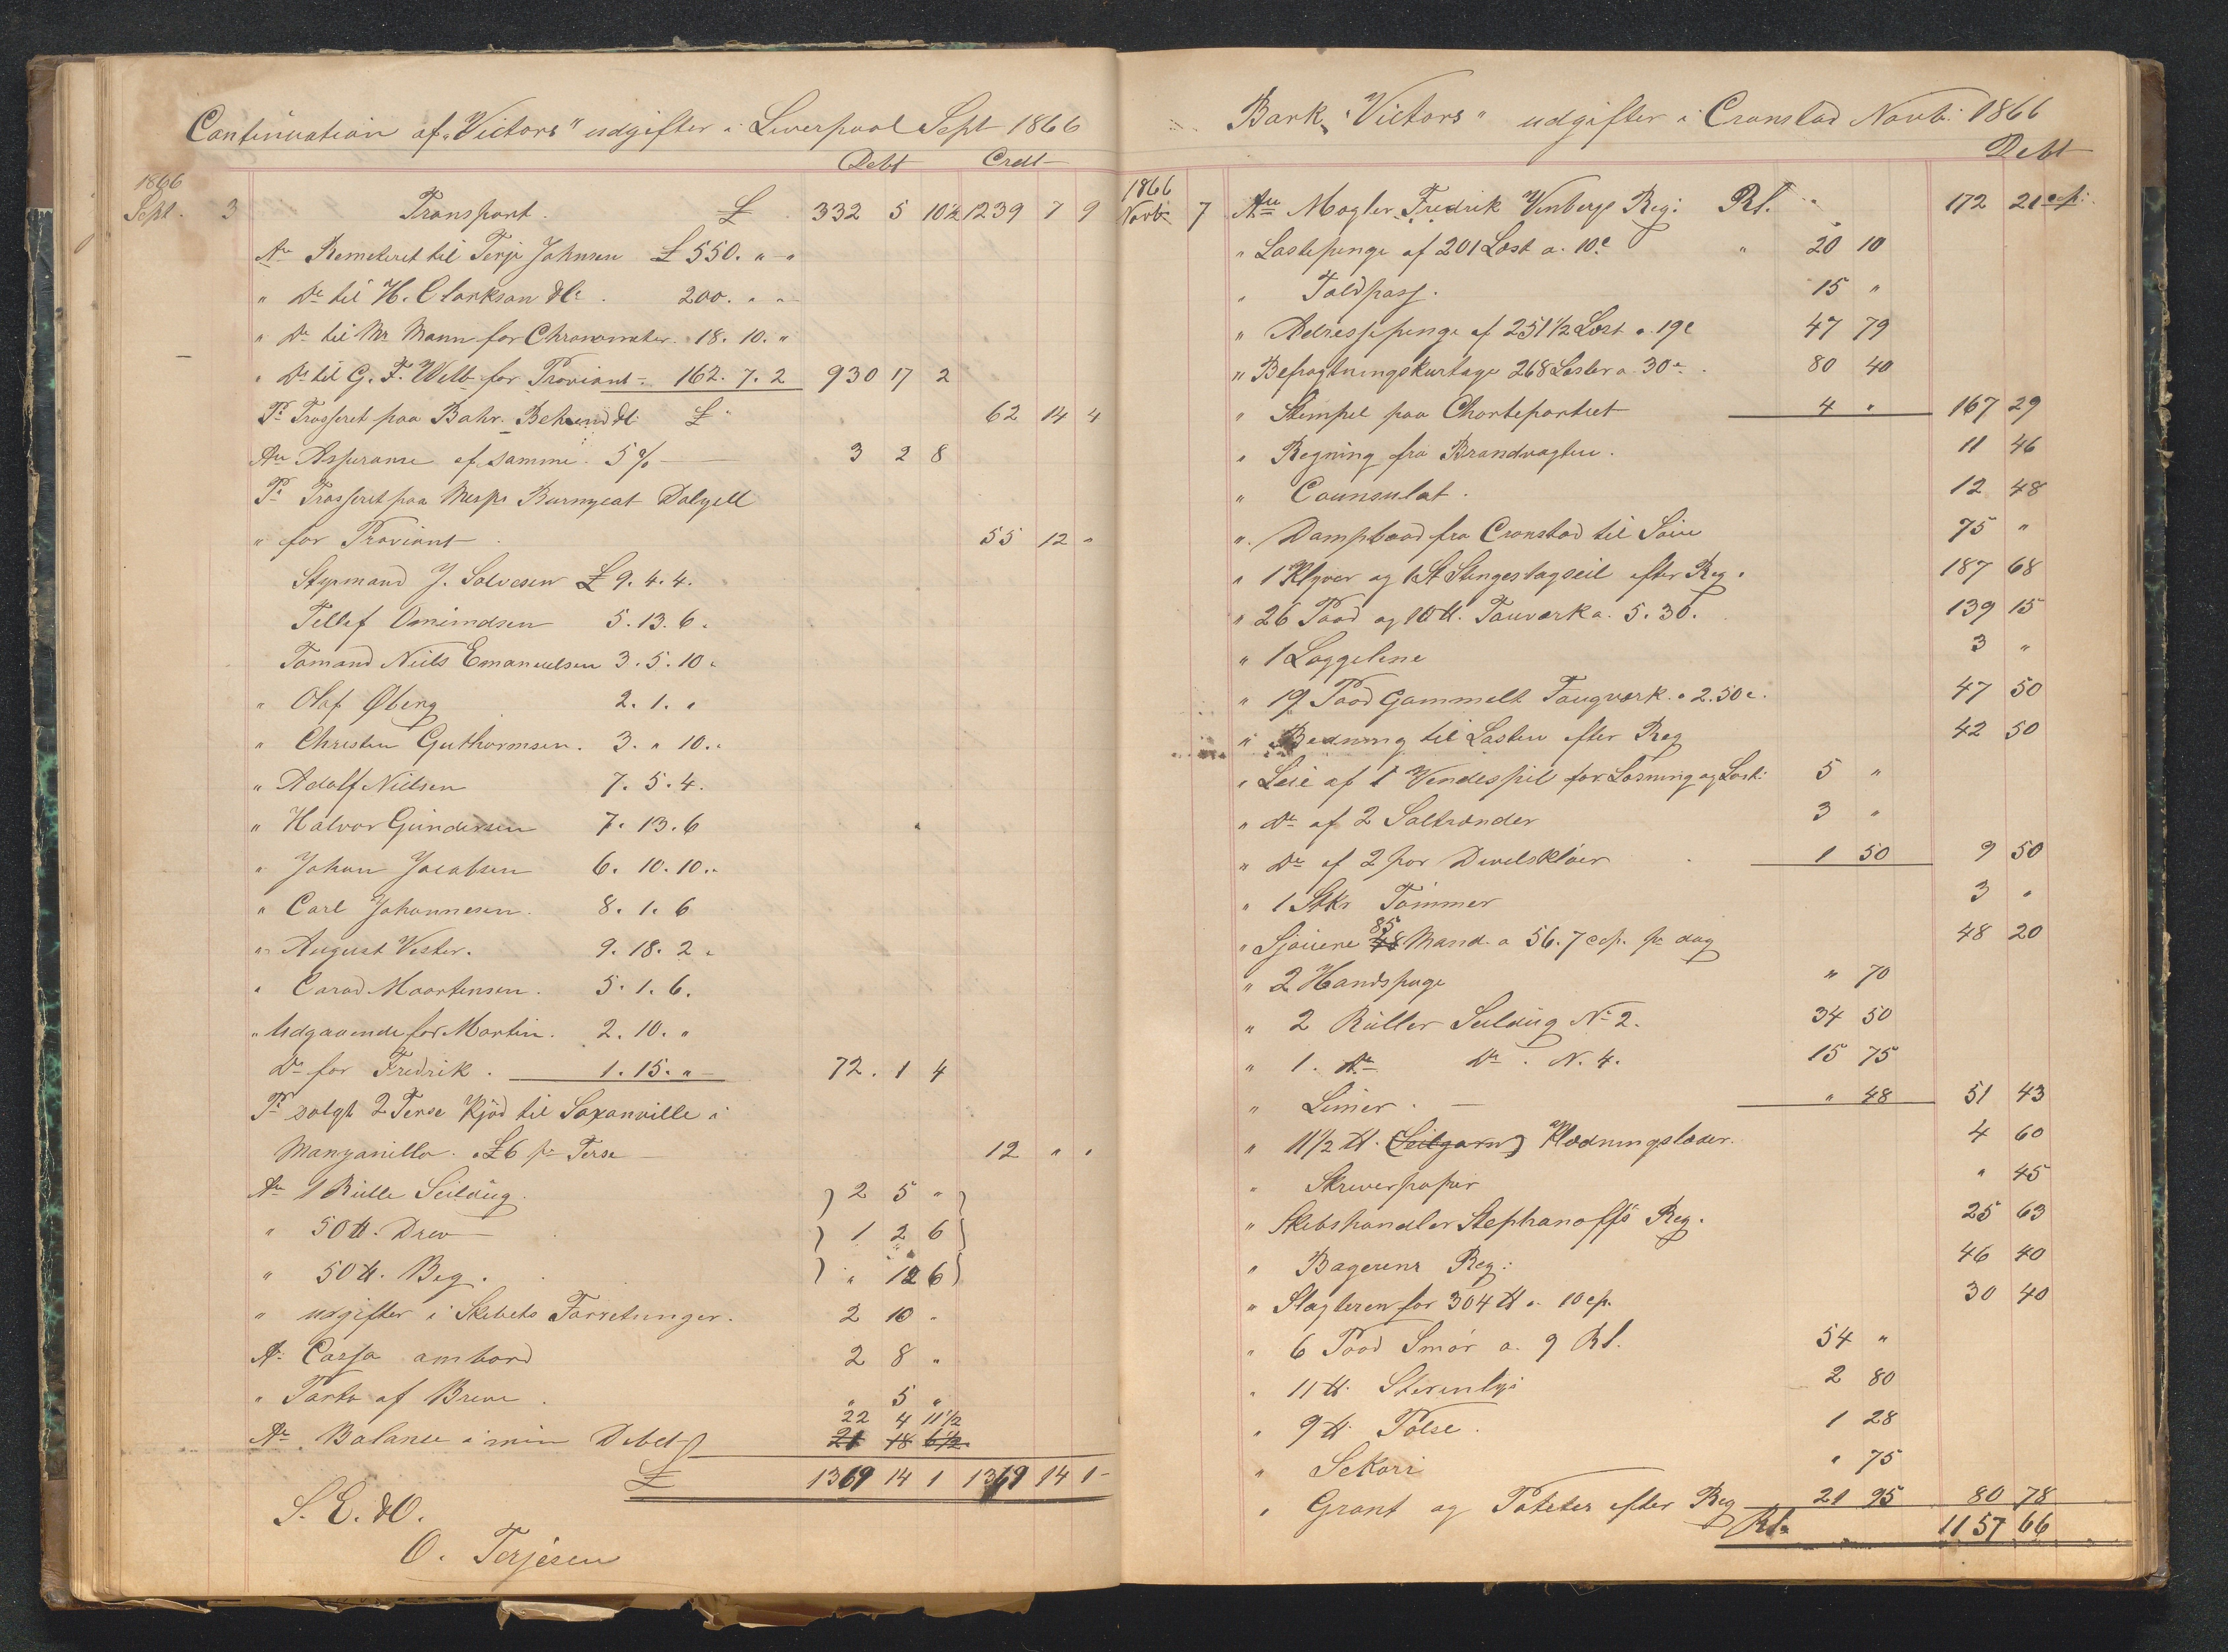 Continuation af "Victors" udgifter i Liverpool Sept 1866
Debt Credt
1866
Sept. 3 Transport. £ 332 5 10½ 1239 7 9
An Remeteret til Terje Johnsen £ 550. " - "
" Do til H. Clarkson & Co. 200. " -
" Do til Mr Mann for Chronometer. 18. 10. "
" Do til G. F. Webb for Proviant - 162. 7. 2 930 17 2
Pr Trasseret paa Bahr. Behrend & Co £ " 62 14 4
An Assurance af samme. 5 % 3 2 8
Pr Trasseret paa Messrs Burnyeat Dalzell
" for Proviant 55 12 "
Styrmand J. Salvesen £ 9. 4. 4.
Tellef Omimdsen 5. 13. 6.
Tømand Niels Emanuelsen 3. 5. 10.
" Olaf Øberg 2. 1. "
" Christen Guthormsen. 3. " 10.
" Adolf Nielsen 7. 5. 4.
" Halvor Gundersen 7. 13. 6
" Johan Jacobsen 6. 10. 10.
" Carl Johannesen. 8. 1. 6
" August Vester. 9. 18. 2.
" Carad Maartensen. 5. 1. 6.
" Udgaaende for Martin. 2. 10. "
Do for Fredrik. 1. 15. " 72. 1 4
Pr solgt 2 Terse Kjød til Saxanville i
Manzanillo. a £6 pr Terse 12 " "
An 1 Rulle Seildug. 2 5 "
" 50 ℔. Drev 1 2 6
" 50 ℔. Beg. " 12 6
" udgifter i Skibets Forretninger. 2 10 "
An Cassa ambord 2 8 "
" Porto af Breve. " 5 "
22 4 11½
An Balance i min Debet 21 18 6½
£ 1369 14 1 1369 14 1
S. E. & O.
O. Terjesen
Bark "Victors" udgifter i Cronstad Novb: 1866
Debt
1866
Novb 7 An Mægler Fredrik Vinbergs Reg: Rl. " 172 21 cop:
" Lastepenge af 201 Læst a. 10 c " 20 10
" Toldpass. 15 "
" Adressepenge af 251½ Læst a 19 c 47 79
" Befragtningskurtage 268 Læster a 30 c. 80 40
" Stempel paa Chartepartiet 4 " 167 29
" Regning fra Brandvagten. 11 46
" Counsulat. 12 48
" Dampbaad fra Cronstad til Søiu 75 "
" 1 Klyver og 1 St Stengestagseil efter Reg. 187 68
" 26 Pood og 10 ℔. Tauværk a. 5. 30. 139 15
" 1 Loggeline 3 "
" 19 Pood Gammelt Taugværk. a 2. 50 c. 47 50
" Bedning til Lasten efter Reg 42 50
" Leie af 1 Vendespil for Losning og Last: 5 "
" Do af 2 Saltrønder 3 "
" Do af 2 par Divelskløer 1 50 9 50
" 1 Stkr Tømmer 3 "
85
" Sjouere 48 Mand. a 56. 7 cop. pr dag 48 20
" 2 Handspage " 70
" 2 Ruller Seildug No 2. 34 50
" 1. Do Do. N. 4. 15 75
" Limer. " 48 51 43
" 11½ ℔. (Seilgarn) Klædningslæder. 4 60
" Skriverpapir " 45
" Skibshandler Stephanoffs Reg. 25 63
" Bagerens Reg: 46 40
" Slagteren for 304 ℔ a. 10 cp. 30 40
" 6 Pood Smør a. 9 Rl. 54 "
" 11 ℔. Sterinlys 2 80
" 9 ℔. Pølse. 1 28
" Sekori " 75
" Grønt og Poteter efter Reg 21 95 80 78
Rl. 1157 66